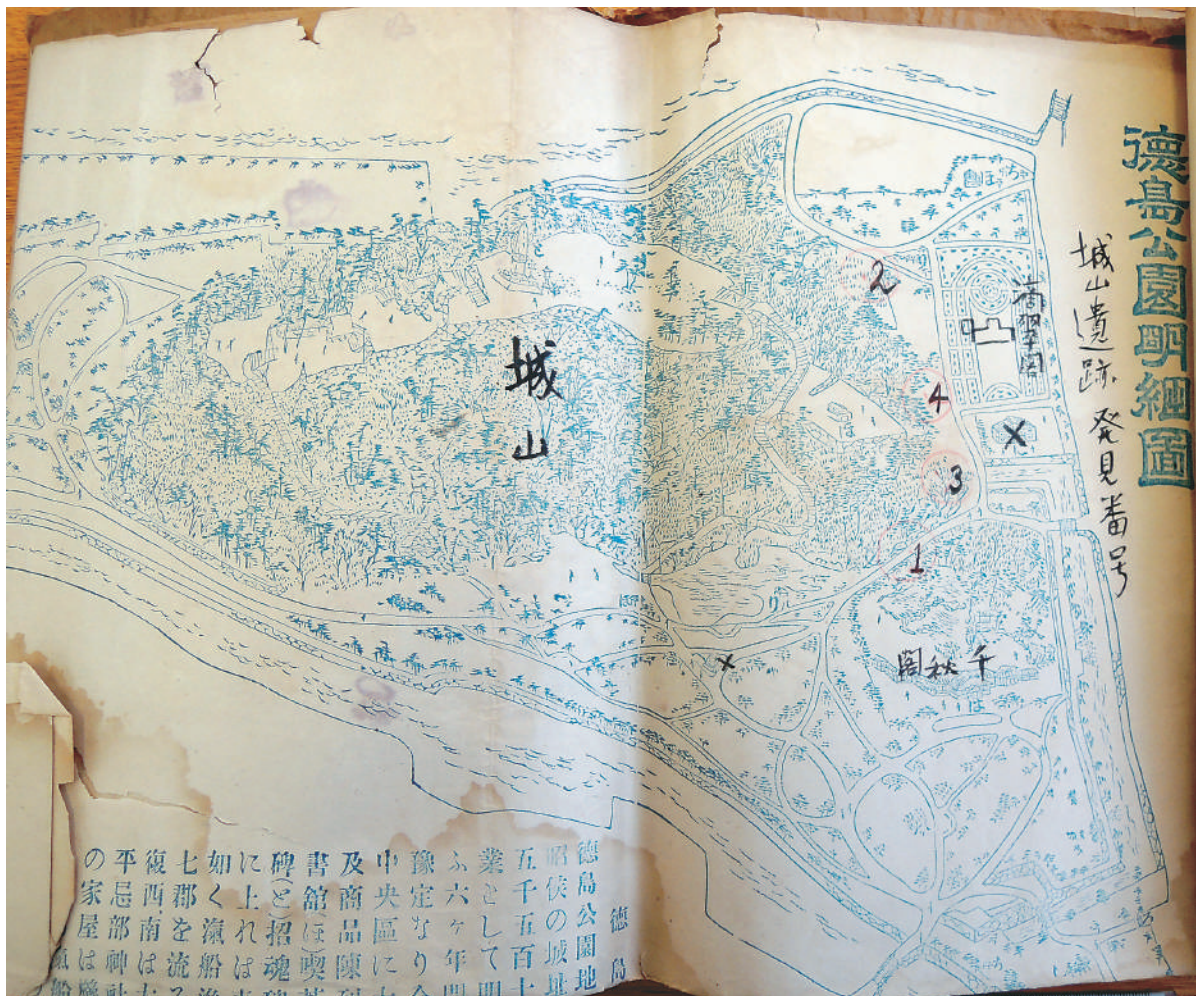 德島公園明細圖
城山遺跡発見番号
城山
滴翠閣
千秋閣
2
4
X
3
1
x
德島
德島公園地
昭侯の城址
五千五百十
業として明
ふ六ヶ年間
豫定なり
中央區に
及商品陳列
書館(ほ)喫茶
碑(と)招魂碑
に上れば
如く滊船漁
七郡を流る
復西南は
平忌部神社
の家屋は